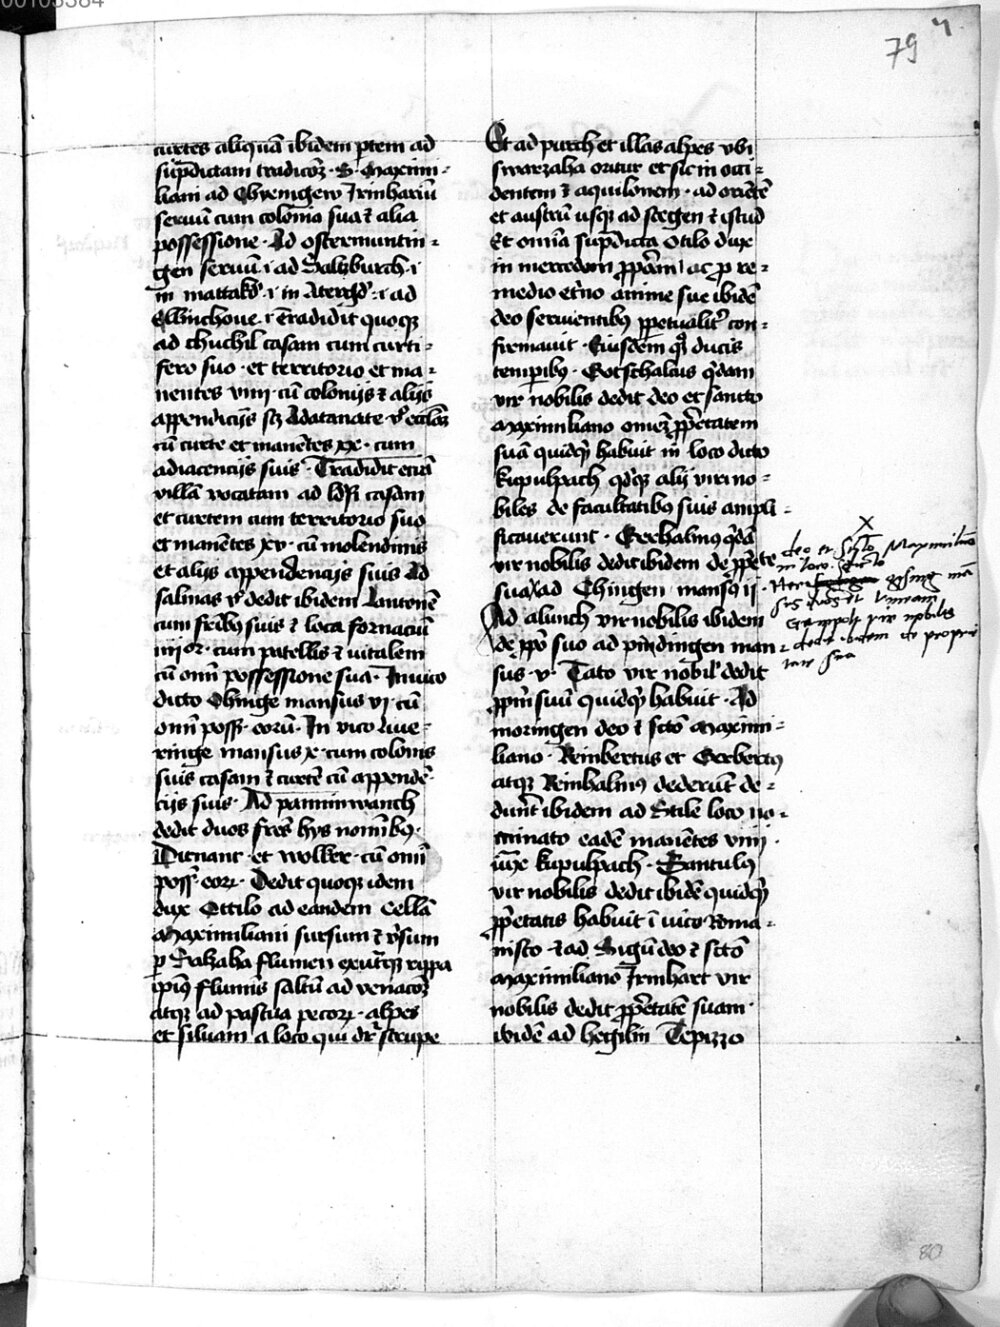 00103384
79
curtes aliquā ibidem ꝑtem ad
sup̄dictam tradicōꝫ · S · Maximi-
liani ad Chyemgew Irinhariū
seruū cum colonia sua ⁊ alia
possessione · Ad ostermuntin-
gen seruū · i · ad Saltzburch · i ·
in · i · in · i · ad
Ellinchoue · i · Tradidit quoqꝫ
ad chuchil casam cum curti-
fero suo · et territorio et ma-
nentes viiij · cū colonijs ⁊ alijs
appendicijs sꝫ
cū curte et manētes xx · cum
adiacencijs suis · Tradidit etiā
villā vocatam ad casam
et curtem cum territorio suo
et manētes xv · cū molendinis
et alijs appendencijs suis Ad
salinas dedit ibidem
cum suis ⁊ loca fornaciū
iiijor · cum patellis ⁊ vitalem
cū om̄i possessione sua · In vico
dicto Ohinge mansus vj · cū
om̄i poss · eorū · In vico Liue-
ringe mansus x · cum colonis
suis casam ⁊ curtē cū appendē-
cijs suis · Ad panninwanch
dedit duos fr̄es hys nomībꝫ ·
Dienanc · et wolker · cū om̄i
poss · eoꝝ · Dedit quoqꝫ idem
dux Ottilo ad eandem Cellā
Maximiliani sursum ⁊
ꝑ Salzaha flumen rippa
ipiꝰ flumis saltū ad venacōꝫ
atqꝫ ad pascua pecoꝝ · alpes
et siluam a loco qui dr̄ stcupe
Et ad purch et illas alpes vbi
swarzaha oritur et sic in occi-
dentem ⁊ aquilonem · ad oriētē
et austrū usqꝫ ad stegen ⁊ istud
Et omnia sup̄dicta Otilo dux
in mercedem ꝓpriam ac ꝓ re-
medio et̄no anime sue ibidē
deo seruientibꝫ ꝑpetualit̾ con-
firmauit · Eiusdem ducis
temꝑibꝫ · Gotschalcus q̄dam
vir nobilis dedit deo et sancto
Maximiliano om̄eꝫ ꝓp̄etatem
suā quidqͥd habuit in loco dicto
kupulpach alij viri no-
biles de facultatibꝫ suis ampli-
ficauerunt · Gerhalmꝰ q̄dā
vir nobilis dedit ibidem de ꝓp̄ete
sua x ad Chingen mansꝰ ij ·
Ad alunch vir nobilis ibidem
de ꝓp̄o suo ad pindingen man-
sus · v · Tato vir nobil̾ dedit
ꝓp̄m suū quidqͥd habuit · Ad
moringen deo ⁊ sc̄tō Maximi-
liano · Reinbertus et Gerbertꝰ
atqꝫ Reinhalmꝰ dederūt de-
dunt ibidem ad Stile loco no-
minato eadē manētes viiij ·
iuxͣ kupulpach · Santulꝰ
vir nobilis dedit ibidē quidqͥd
ꝓp̄etatis habuit ī vico Roma-
nisco · ⁊ ad deo ⁊ sc̄tō
Maximiliano Irinhart vir
nobilis dedit ꝓp̄etatē suam ·
ibidē ad hegilin Tepizzo
x
deo et Sc̄to Maximiliano
in loco
et Vineam
vir nobilis
dedit ibidem de proprie
tate sua
80